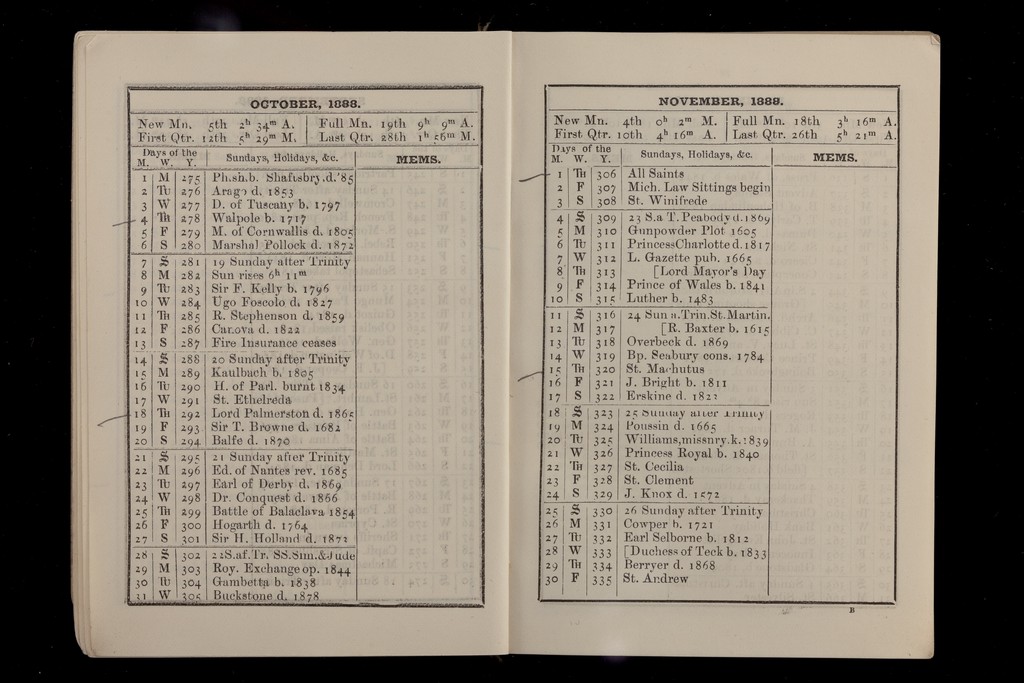 OCTOBER, 1888.
New Mn. 5th 2h 34m A. Full Mn. 19th 9h 9m A.
First Qtr. 12th 5h 29m M. Last Qtr. 28th 1h 56m M.
Days of the
M. W. Y. Sundays, Holidays, &c. MEMS.
1 M 275 Ph.sh.b. Shaftsbry.d.'85
2 Tu 276 Arago d. 1853
3 W 277 D. of Tuscany b. 1797
4 Th 278 Walpole b. 1717
5 F 279 M. of Cornwallis d. 1805
6 S 280 Marshal Pollock d. 1872
7 S 281 19 Sunday after Trinity
8 M 282 Sun rises 6h 11m
9 Tu 283 Sir F. Kelly b. 1796
10 W 284 Ugo Foscolo d. 1827
11 Th 285 R. Stephenson d. 1859
12 F 286 Canova d. 1822
13 S 287 Fire Insurance ceases
14 S 288 20 Sunday after Trinity
15 M 289 Kaulbach b. 1805
16 Tu 290 H. of Parl. burnt 1834
17 W 291 St. Ethelreda
18 Th 292 Lord Palmerston d. 1865
19 F 293 Sir T. Browne d. 1682
20 S 294 Balfe d. 1870
21 S 295 21 Sunday after Trinity
22 M 296 Ed. of Nantes rev. 1685
23 Tu 297 Earl of Derby d. 1869
24 W 298 Dr. Conquest d. 1866
25 Th 299 Battle of Balaclava 1854
26 F 300 Hogarth d. 1764
27 S 301 Sir H. Holland d. 1873
28 S 302 22S.af.Tr. SS.Sim.&Jude
29 M 303 Roy. Exchange op. 1844
30 Tu 304 Gambetta b. 1838
31 W 305 Buckstone d. 1878
NOVEMBER, 1888.
New Mn. 4th 0h 2m M. Full Mn. 18th 3h 16m A.
First Qtr. 10th 4h 16m A. Last Qtr. 26th 5h 21m A.
Days of the
M. W. Y. Sundays, Holidays, &c. MEMS.
1 Th 306 All Saints
2 F 307 Mich. Law Sittings begin
3 S 308 St. Winifrede
4 S 309 23 S.a T. Peabody d.1869
5 M 310 Gunpowder Plot 1605
6 Tu 311 Princess Charlotte d. 1817
7 W 312 L. Gazette pub. 1665
8 Th 313 [Lord Mayor's Day
9 F 314 Prince of Wales b. 1841
10 S 315 Luther b. 1483
11 S 316 24 Sun a.Trin.St.Martin.
12 M 317 [R. Baxter b. 1615
13 Tu 318 Overbeck d. 1869
14 W 319 Bp. Seabury cons. 1784
15 Th 320 St. Machutus
16 F 321 J. Bright b. 1811
17 S 322 Erskine d. 1823
18 S 323 25 Sunday after Trinity
19 M 324 Poussin d. 1665
20 Tu 325 Williams,missnry.k.1839
21 W 326 Princess Royal b. 1840
22 Th 327 St. Cecilia
23 F 328 St. Clement
24 S 329 J. Knox d. 1572
25 S 330 26 Sunday after Trinity
26 M 331 Cowper b. 1721
27 Tu 332 Earl Selborne b. 1812
28 W 333 [Duchess of Teck b. 1833
29 Th 334 Berryer d. 1868
30 F 335 St. Andrew
B